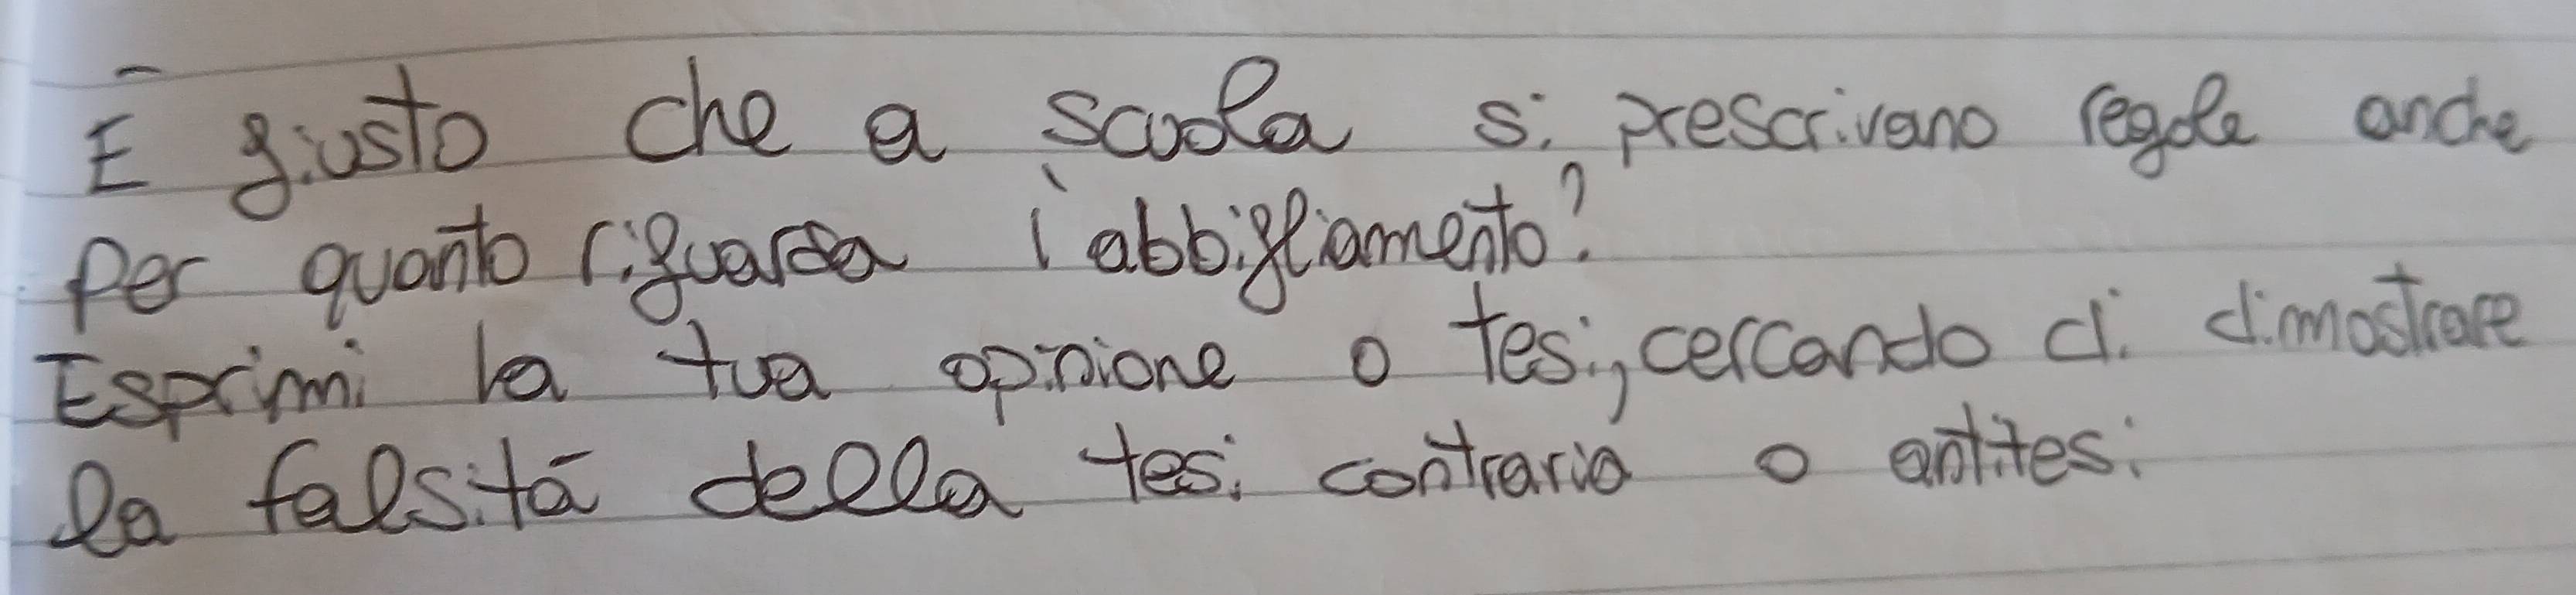 È giusto che a scuola si prescrivano regole anche
per quanto riguarda l'abbigliamento?
Esprimi la tua opinione o tesi, cercando di dimostrare
la falsità della tesi contraria o antitesi